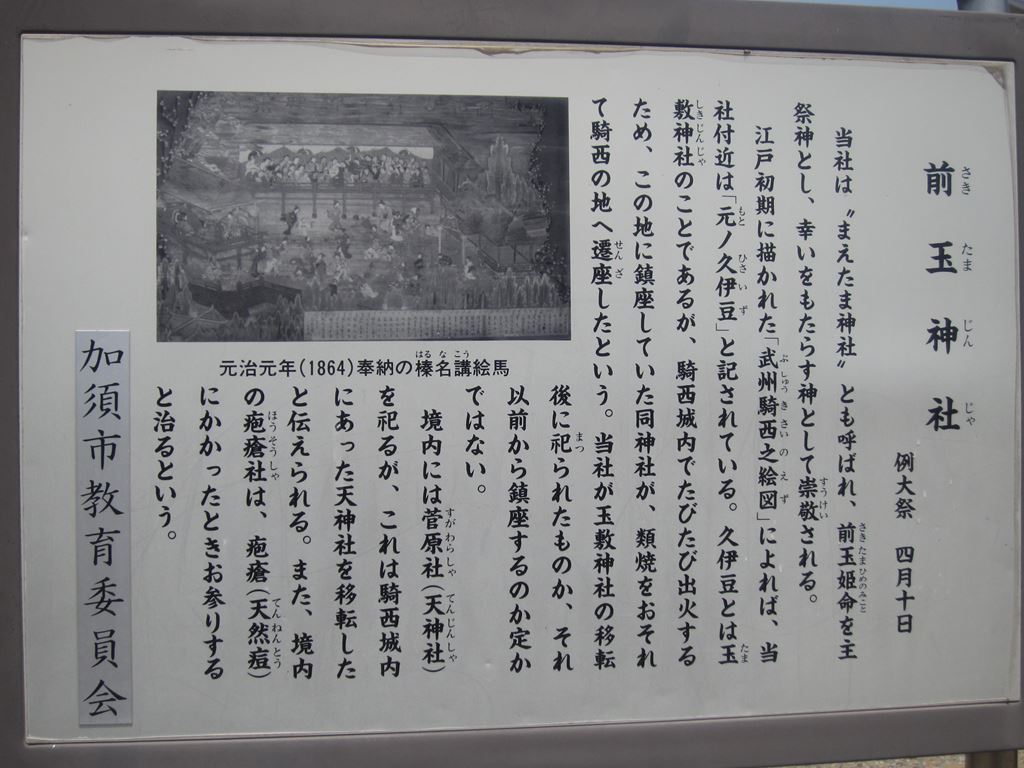 前玉神社
例大祭 四月十日
当社は〝まえたま神社〟とも呼ばれ、前玉姫命を主
祭神とし、幸いをもたらす神として崇敬される。
江戸初期に描かれた「武州騎西之絵図」によれば、当
社付近は「元ノ久伊豆」と記されている。久伊豆とは玉
敷神社のことであるが、騎西城内でたびたび出火する
ため、この地に鎮座していた同神社が、類焼をおそれ
て騎西の地へ遷座したという。当社が玉敷神社の移転
後に祀られたものか、それ
以前から鎮座するのか定か
ではない。
境内には菅原社(天神社)
を祀るが、これは騎西城内
にあった天神社を移転した
と伝えられる。また、境内
の疱瘡社は、疱瘡(天然痘)
にかかったときお参りする
と治るという。
元治元年(1864)奉納の榛名講絵馬
加須市教育委員会